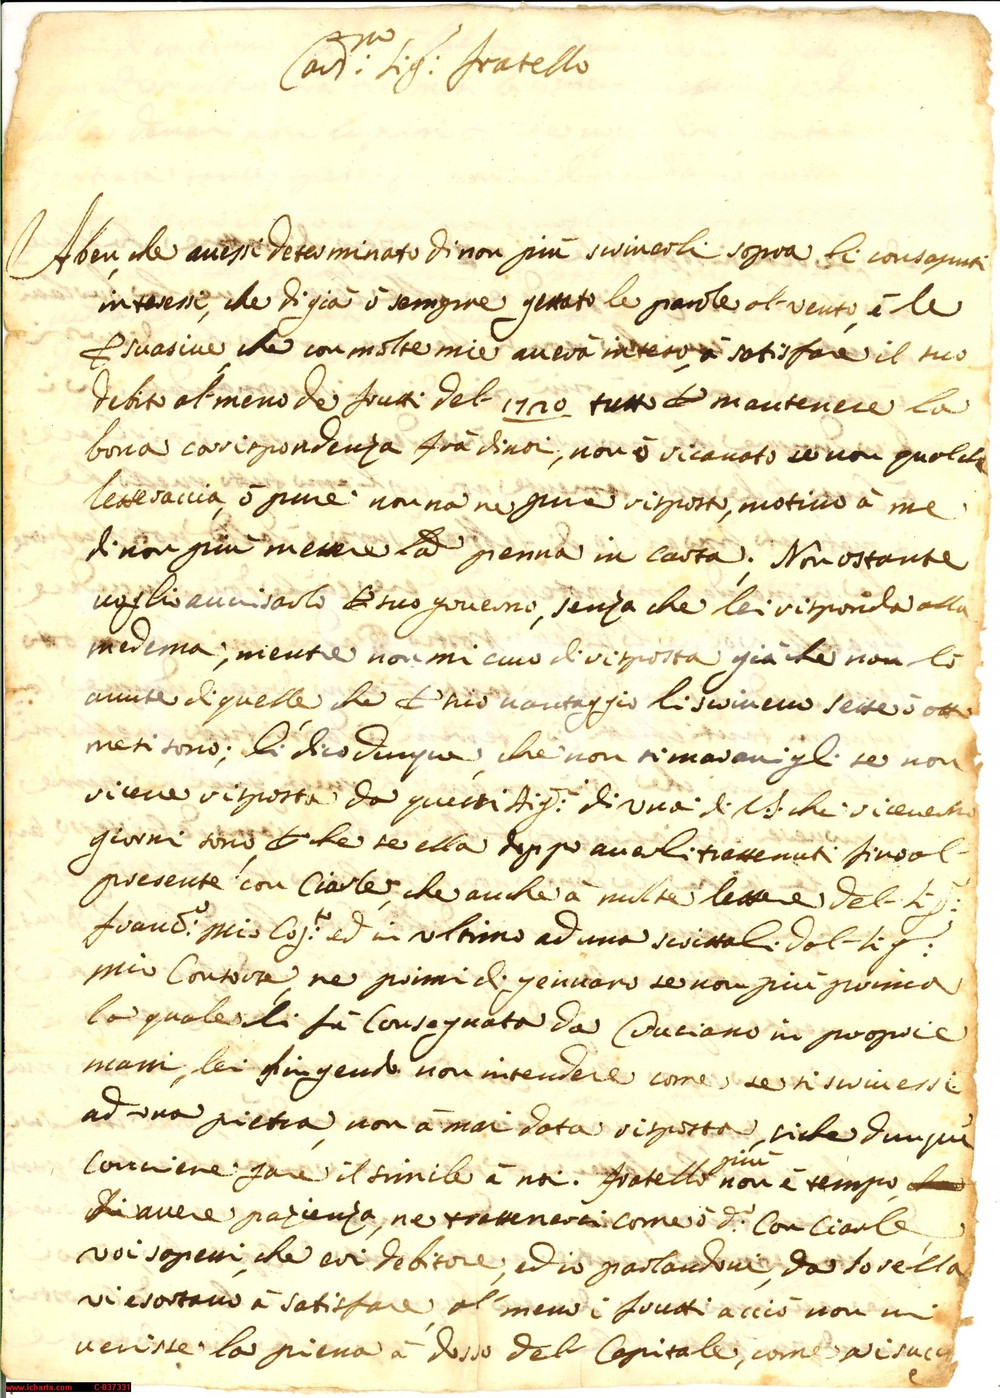 Car.mo Sig.r fratello
Aben, che auessi determinato di non più scriuerli sopra li consaputi
interessi, che di già ò sempre gettato le parole al vento, è le
persuasiue, che con molte mie aueua inteso, à satisfare il suo
debito al meno de frutti del 1720 tutto per mantenere la
bona corrispondenza frà di noi, non ò ricauato se non qualche
letteraccia, ò pure non na ne pure risposto, motiuo à me
di non più mettere la penna in carta. Non ostante
uoglio auuisarlo per suo gouerno, senza che lei risponda alla
medema, mentre non mi curo di risposta già che non l'ò
auute di quelle, che per suo uantaggio li scriueuo sette ò otto
mesi sono; li dico dunque, che non si marauigli se non
riceue risposta da questi Sig.ri di una di V.S. che riceuerno
giorni sono, per che se ella doppo auerli trattenuti fino al
presente con Ciarle, che anche à molte lettere del Sig.r
Franc.o mio Cog.to ed in ultimo ad una scrittali dal Sig.r
mio Consorte, ne primi di gennaro se non più prima
la quale li fù Consegnata da Ruciano in proprie
mani, lei fingendo non intendere come se si scriuessi
ad una pietra, non à mai data risposta, siche dunque
conuiene fare il simile à noi. fratello non più è tempo
di auere pazienza, ne trattenerci come ò d.o con ciarle,
voi sapeui, che eri debitore, ed io parlandoui da sorella
vi esortauo à satisfare al meno i frutti acciò non ui
uenisse la piena à dosso del Capitale, come ui succ
e
www.icharta.com C-037331